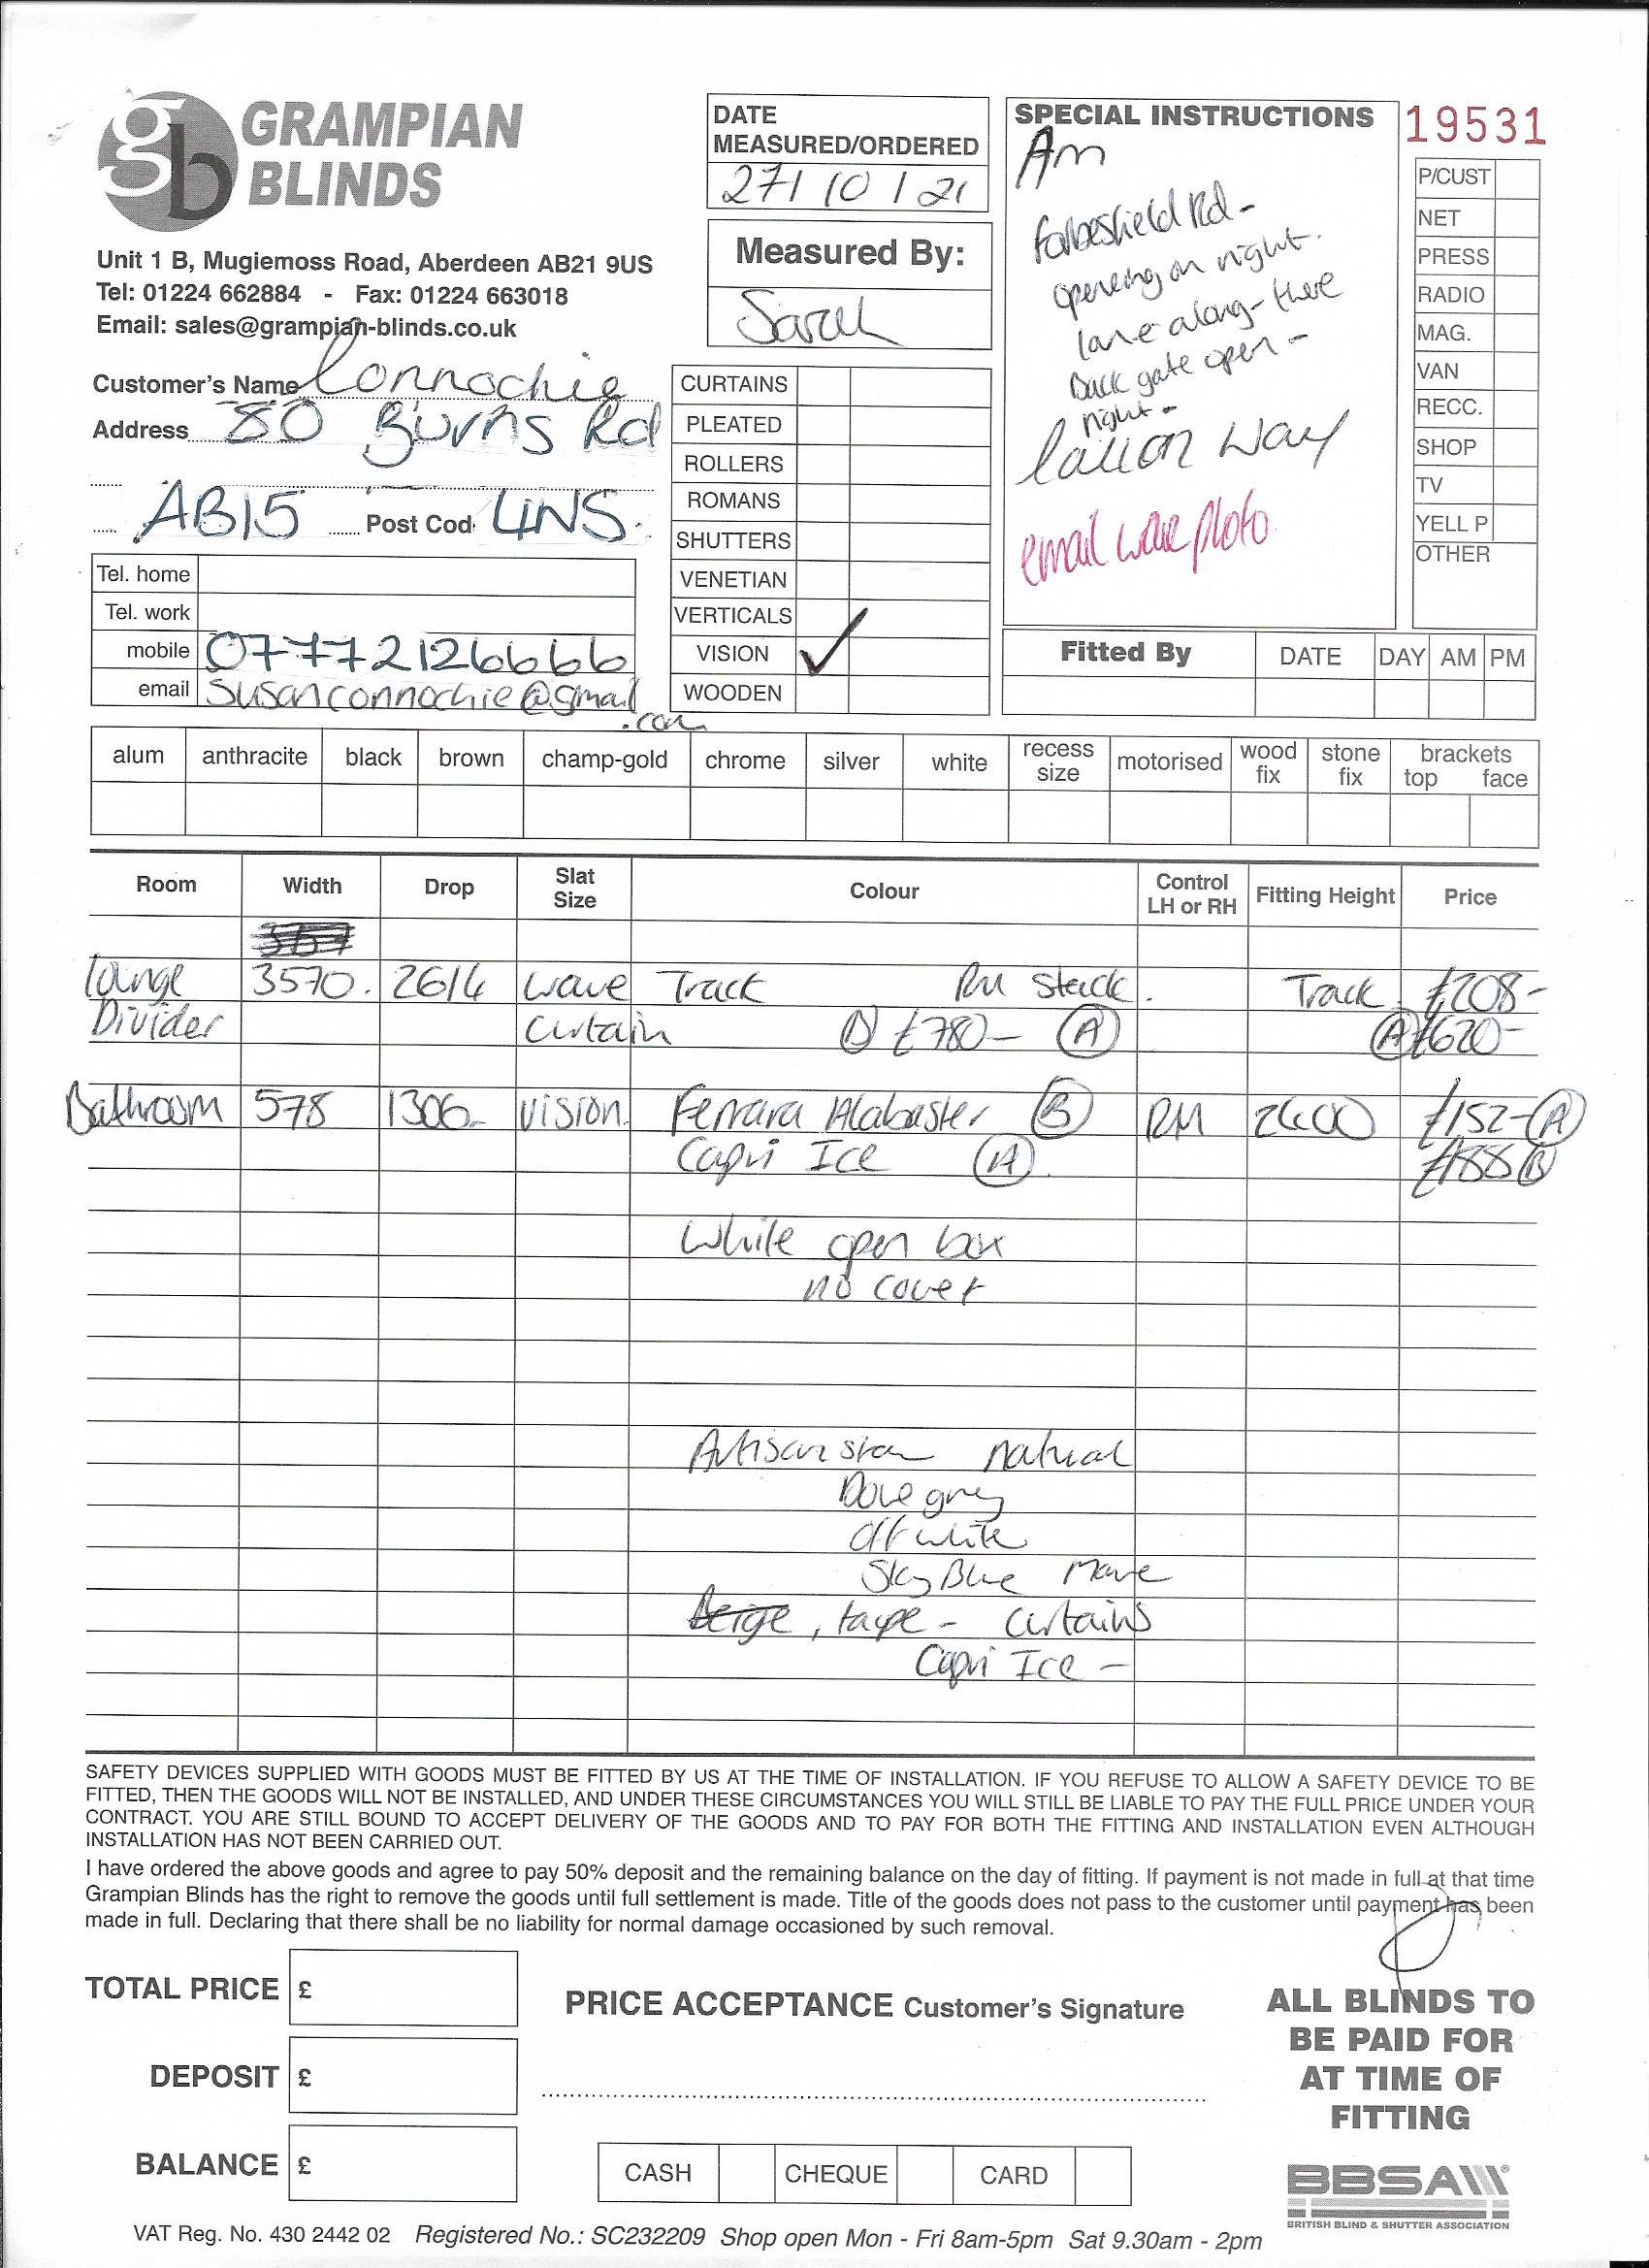 gb GRAMPIAN BLINDS
Unit 1 B, Mugiemoss Road, Aberdeen AB21 9US
Tel: 01224 662884 - Fax: 01224 663018
Email: sales@grampian-blinds.co.uk
Customer's Name Connochie
Address 80 Burns Rd
AB15 Post Cod 4NS.
Tel. home
Tel. work
mobile 07772126666
email susanconnochie@gmail
.com
DATE
MEASURED/ORDERED
27/10/21
Measured By:
Sarah
CURTAINS
PLEATED
ROLLERS
ROMANS
SHUTTERS
VENETIAN
VERTICALS
VISION ✓
WOODEN
SPECIAL INSTRUCTIONS
Am
Forbesfield Rd -
opening on right.
lane along - there
Back gate open -
right -
way
email wave photo
19531
P/CUST
NET
PRESS
RADIO
MAG.
VAN
RECC.
SHOP
TV
YELL P
OTHER
Fitted By DATE DAY AM PM
alum anthracite black brown champ-gold chrome silver white recess size motorised wood fix stone fix brackets top face
Room Width Drop Slat Size Colour Control LH or RH Fitting Height Price
lounge 3570. 2614 wave Track RH Stack. Track £208-
Divider Curtain B £780- A A £620-
Bathroom 578 1306- Vision. Ferrara Alabaster B RH 2400 £152- A
Capri Ice A £188 B
White open box
no cover
Artisan natural
Dove grey
Off white
Sky Blue
Beige, taupe - Curtains
Capri Ice -
SAFETY DEVICES SUPPLIED WITH GOODS MUST BE FITTED BY US AT THE TIME OF INSTALLATION. IF YOU REFUSE TO ALLOW A SAFETY DEVICE TO BE
FITTED, THEN THE GOODS WILL NOT BE INSTALLED, AND UNDER THESE CIRCUMSTANCES YOU WILL STILL BE LIABLE TO PAY THE FULL PRICE UNDER YOUR
CONTRACT. YOU ARE STILL BOUND TO ACCEPT DELIVERY OF THE GOODS AND TO PAY FOR BOTH THE FITTING AND INSTALLATION EVEN ALTHOUGH
INSTALLATION HAS NOT BEEN CARRIED OUT.
I have ordered the above goods and agree to pay 50% deposit and the remaining balance on the day of fitting. If payment is not made in full at that time
Grampian Blinds has the right to remove the goods until full settlement is made. Title of the goods does not pass to the customer until payment has been
made in full. Declaring that there shall be no liability for normal damage occasioned by such removal.
TOTAL PRICE £
DEPOSIT £
BALANCE £
PRICE ACCEPTANCE Customer's Signature
CASH CHEQUE CARD
ALL BLINDS TO
BE PAID FOR
AT TIME OF
FITTING
BBSA
BRITISH BLIND & SHUTTER ASSOCIATION
VAT Reg. No. 430 2442 02 Registered No.: SC232209 Shop open Mon - Fri 8am-5pm Sat 9.30am - 2pm